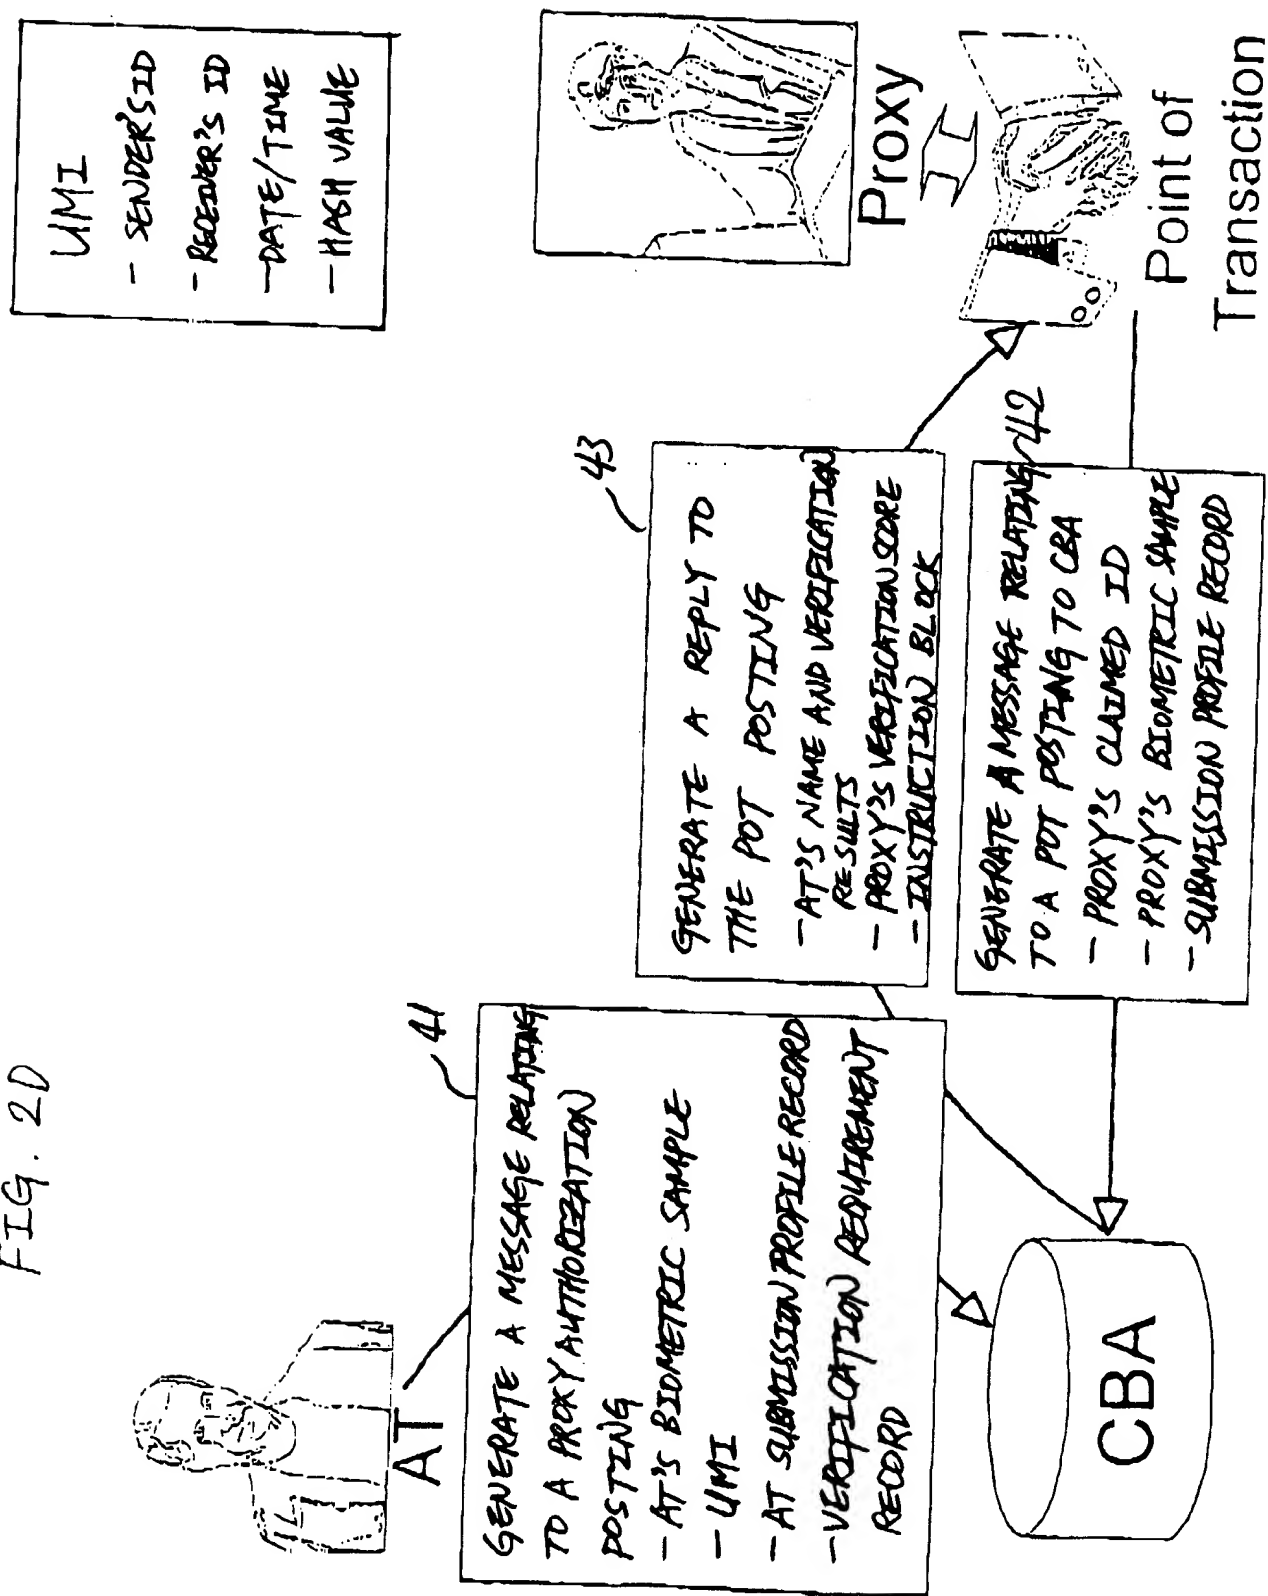 FIG. 2D
UMI
- SENDER'S ID
- RECEIVER'S ID
- DATE/TIME
- HASH VALUE
AT
41
GENERATE A MESSAGE RELATING
TO A PROXY AUTHORIZATION
POSTING
- AT'S BIOMETRIC SAMPLE
- UMI
- AT SUBMISSION PROFILE RECORD
- VERIFICATION REQUIREMENT
RECORD
43
GENERATE A REPLY TO
THE POT POSTING
- AT'S NAME AND VERIFICATION
RESULTS
- PROXY'S VERIFICATION SCORE
- INSTRUCTION BLOCK
Proxy
CBA
GENERATE A MESSAGE RELATING
42
TO A POT POSTING TO CBA
- PROXY'S CLAIMED ID
- PROXY'S BIOMETRIC SAMPLE
- SUBMISSION PROFILE RECORD
Point of
Transaction